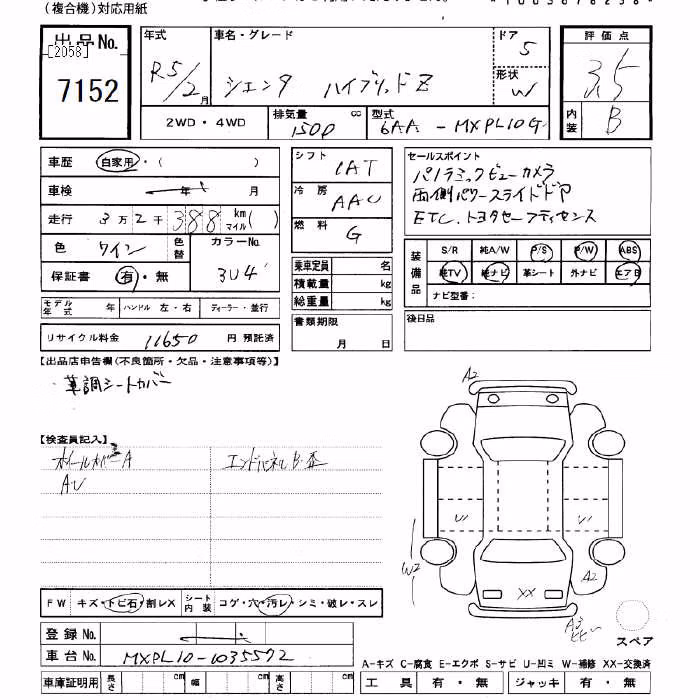 (複合機)対応用紙
出品No.
[2058]
7152
年式
R5/2月
車名・グレード
シエンタ ハイブリッドZ
ドア
5
形状
W
評価点
3.5
内装
B
2WD・4WD
排気量
1500
cc
型式
6AA-MXPL10G
車歴 自家用・( )
車検 年 月
走行 3万2千388 km マイル( )
色 ワイン
色替
カラーNo.
3U4
保証書 有・無
モデル年式 年 ハンドル 左・右 ディーラー・並行
リサイクル料金 11650 円 預託済
シフト
IAT
冷房
AAC
燃料
G
乗車定員 名
積載量 kg
総重量 kg
書類期限
月 日
セールスポイント
パノラミックビューカメラ
両側パワースライドドア
ETC.トヨタセーフティセンス
装備品
S/R 純A/W P/S P/W ABS
純TV 純ナビ 革シート 外ナビ エアB
ナビ型番:
後日品
【出品店申告欄(不良箇所・欠品・注意事項等)】
・革調シートカバー
【検査員記入】
ホイールカバーA
エンドパネルB・歪
AU
FW キズ・トビ石・割レX シート内装 コゲ・穴・汚レ・シミ・破レ・スレ
登録No.
車台No. MXPL10-1035572
車庫証明用 長さ cm 幅 cm 高さ cm
A2
U1
U1
W2
A2
XX
A3
スペア
A-キズ C-腐食 E-エクボ S-サビ U-凹ミ W-補修 XX-交換済
工具 有・無 ジャッキ 有・無